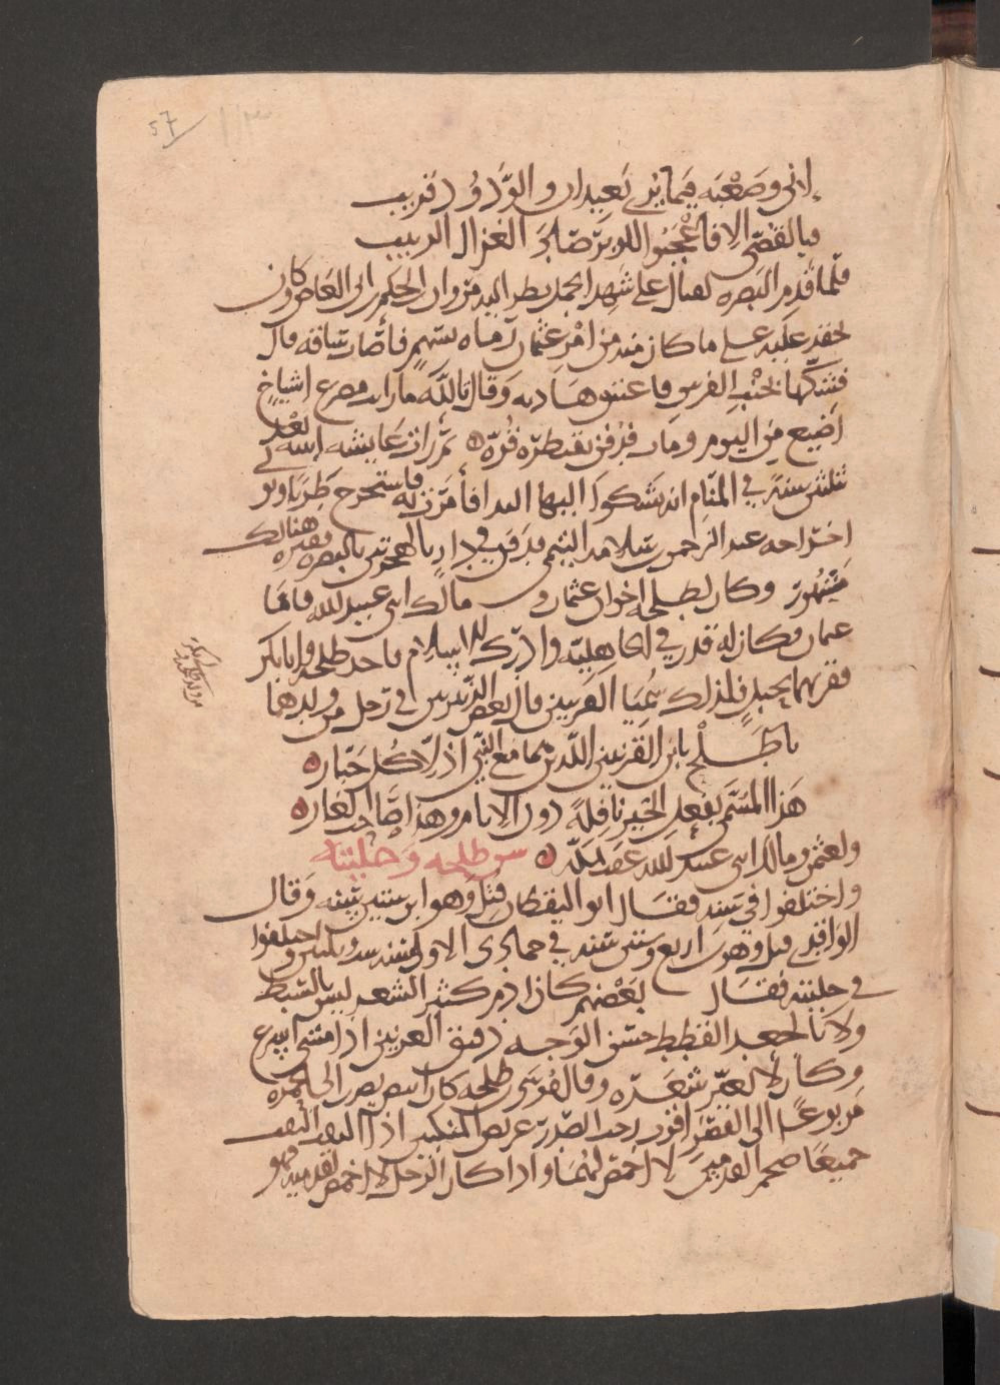 57
اني وضعته فيما يرى بعيدا والودود قريب
فيالقصي الا فاعجبوا للابن صار الغزال الربيب
فلما قدم البصره لقتال علي شهد الجمل نظر اليه مروان الحكم بن ابي العاص وكان
يحقد عليه على ما كان منه من امر عثمان رماه بسهم فاصاب ساقه قال
فشكها بجنب الفرس فاعتنق هاديه وقال تالله ما رايت مصرع اشياخ
اضيع من اليوم ومات فدفن بقنطرة قرة ثم رات عايشه ابنته بعد
ثلثين سنة في المنام انه يشكوا اليها الندا فأمرت به فاستخرج طريا وتو
اخراجه عبد الرحمن سلامه التيمي فدفن في دار بالهجرتين بالبصره فقبره هنالك
مشهور وكان لطلحه اخوان عثمان و مالك ابني عبيد الله فاما
عثمان فكان له قدر في الجاهلية وادرك الاسلام فاخذ طلحه وابا بكر
فقرنهما بحبل فلذلك سميا القرينين قال بعض الزبيريين في رجل من ولدهما
يا طلح يا ابن القرينين اللذين هما مع النبي اذلا كل جبار
هذا المسمى بفعل الخير نافلة دون الانام وهذا صاحب الغار
ولعثمن ومالك ابني عبيد الله عقب بمكة سن طلحه وحليته
واختلفوا في سنه فقال ابو اليقظان قتل وهو ابن ستين سنه وقال
الواقدي قتل وهو ابن اربع وستين سنه في جمادى الاولى سنه ست وثلثين واختلفوا
في حليته فقال بعضهم كان ادم كثير الشعر ليس بالسبط
ولا بالجعد القطط حسن الوجه دقيق العرنين اذا مشى اسرع
وكان لا يغير شعره وقال موسى بن طلحه كان ابيض يضرب الى الحمره
مربوعا الى القصر اقرب رحب الصدر عريض المنكبين اذا التفت التفت
جميعا ضخم القدمين لا اخمص لهما واذا كان الرجل لا اخمص لقدميه فهو